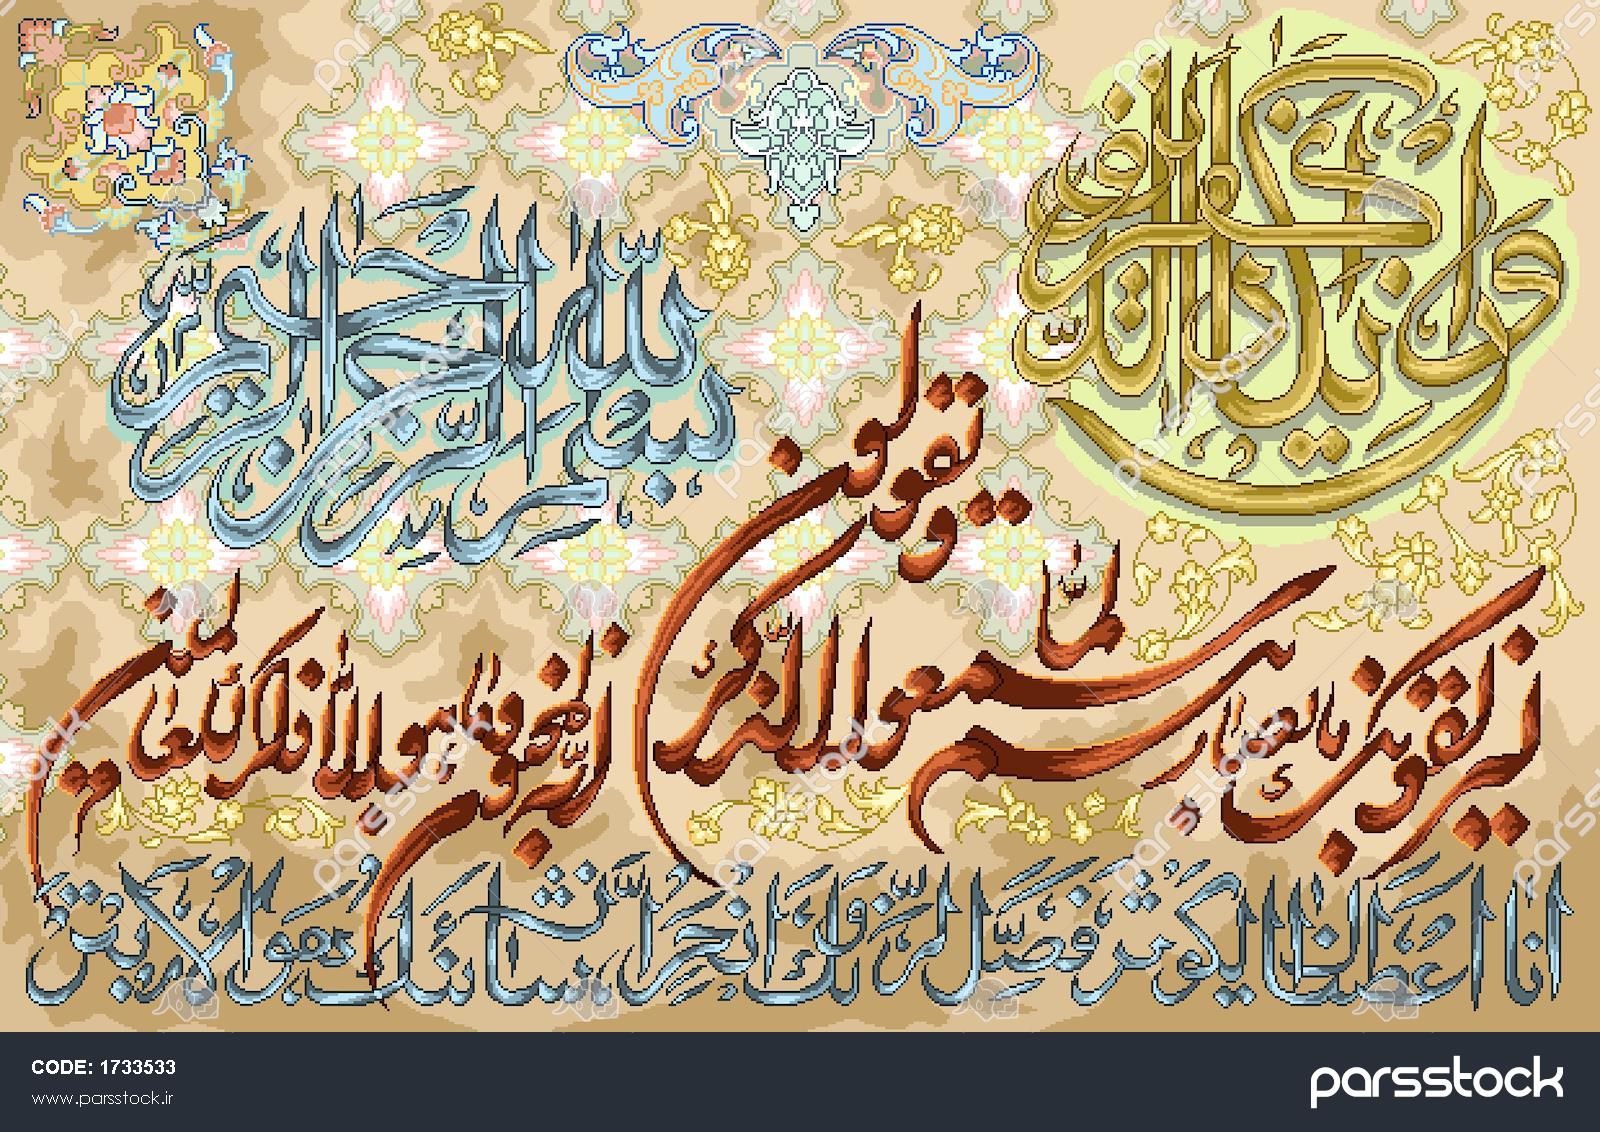 بسم الله الرحمن الرحيم
وان يكاد الذين كفروا
ليزلقونك بابصارهم لما سمعوا الذكر
ويقولون
انه لمجنون وما هو الا ذكر للعالمين
انا اعطيناك الكوثر فصل لربك وانحر ان شانئك هو الابتر
CODE: 1733533
www.parsstock.ir
parsstock